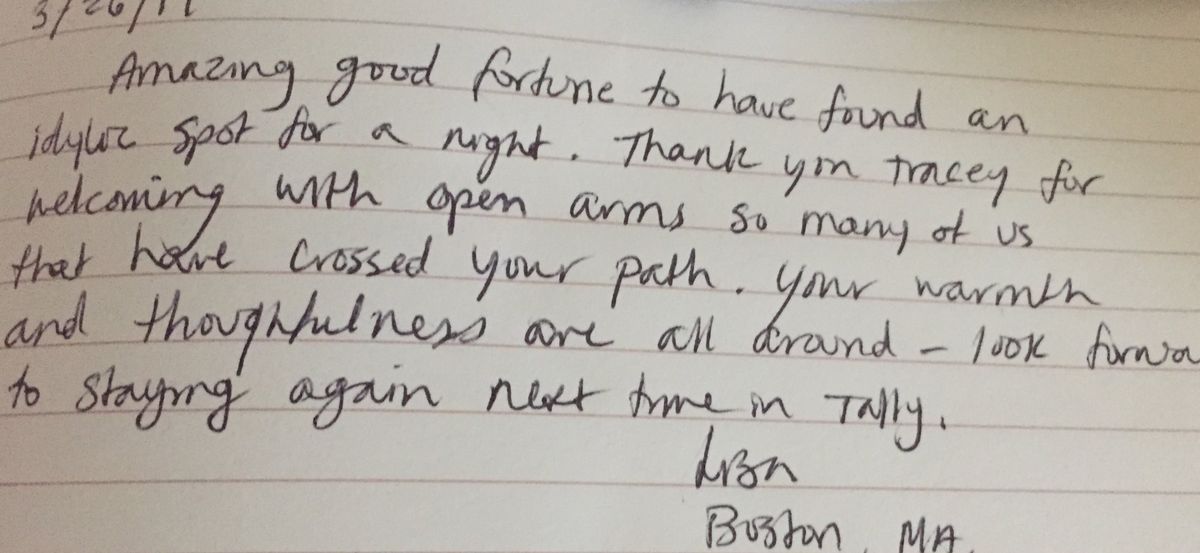 3/26/17
Amazing good fortune to have found an
idylic spot for a night. Thank you Tracey for
welcoming with open arms so many of us
that have crossed your path. Your warmth
and thoughfulness are all around - look forwa
to staying again next time in Tally.
Boston, MA.